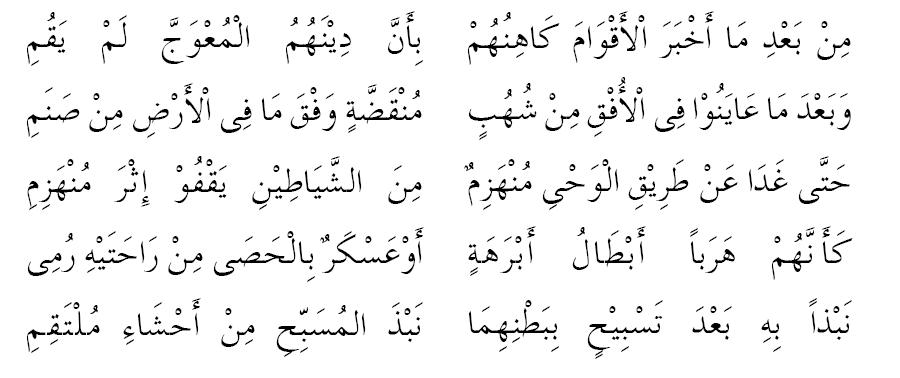 مِنْ بَعْدِ مَا أَخْبَرَ الْأَقْوَامَ كَاهِنُهُمْ بِأَنَّ دِيْنَهُمُ الْمُعْوَجَّ لَمْ يَقُمِ
وَبَعْدَ مَا عَايَنُوْا فِى الْأُفْقِ مِنْ شُهُبٍ مُنْقَضَّةٍ وَفْقَ مَا فِى الْأَرْضِ مِنْ صَنَمِ
حَتَّى غَدَا عَنْ طَرِيْقِ الْوَحْىِ مُنْهَزِمٌ مِنَ الشَّيَاطِيْنِ يَقْفُوْ إِثْرَ مُنْهَزِمِ
كَأَنَّهُمْ هَرَباً أَبْطَالُ أَبْرَهَةٍ أَوْعَسْكَرٌ بِالْحَصَى مِنْ رَاحَتَيْهِ رُمِى
نَبْذاً بِهِ بَعْدَ تَسْبِيْحٍ بِبَطْنِهِمَا نَبْذَ المُسَبِّحِ مِنْ أَحْشَاءِ مُلْتَقِمِ